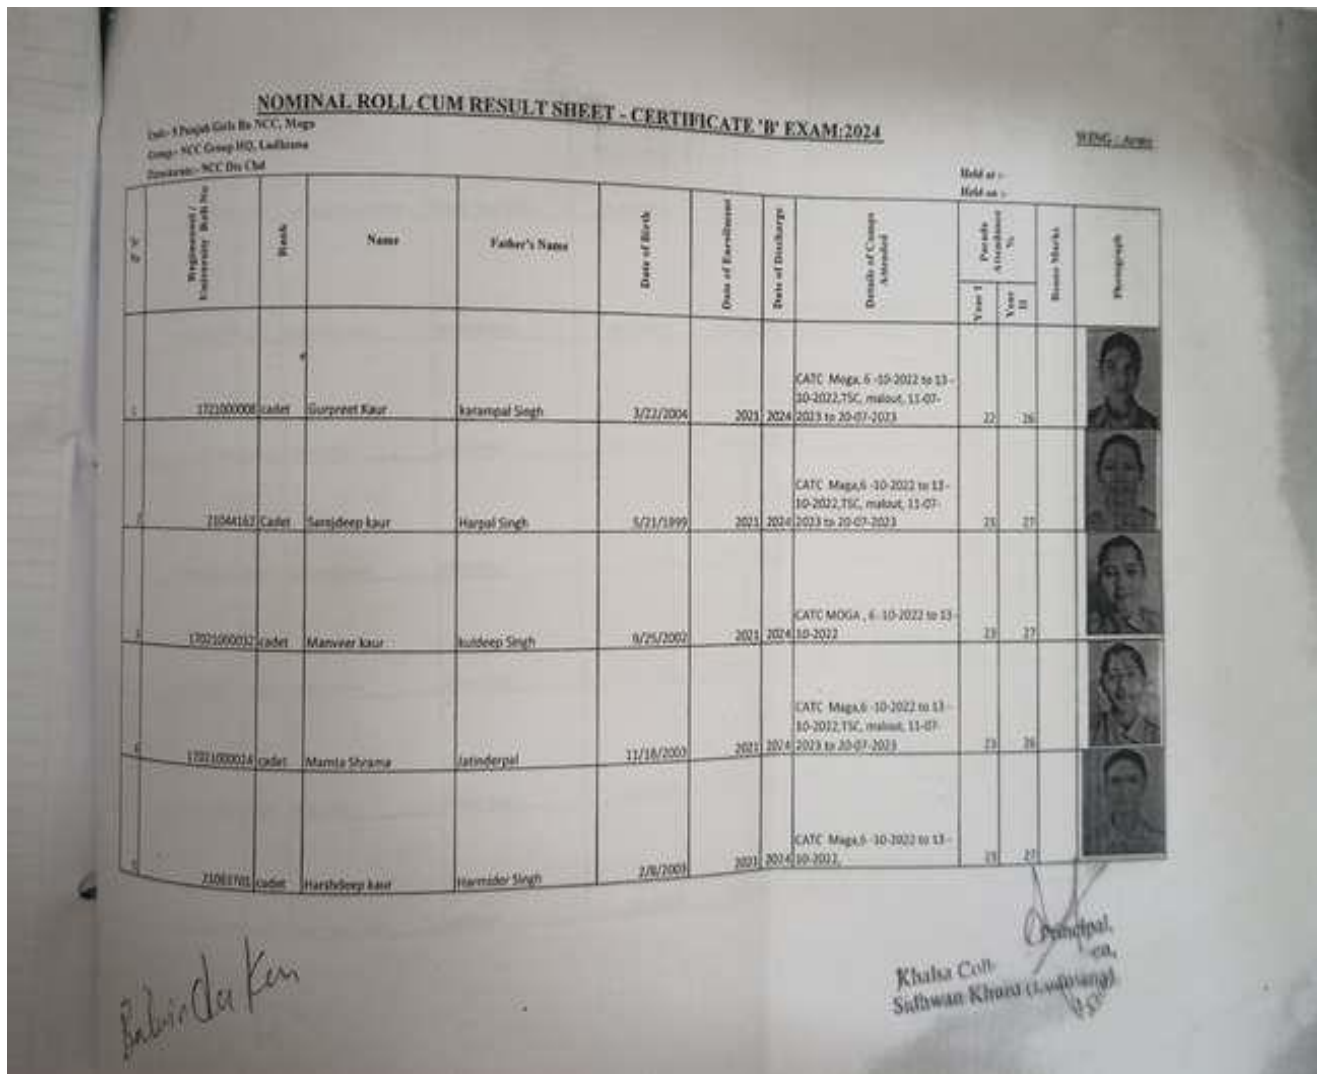 NOMINAL ROLL CUM RESULT SHEET - CERTIFICATE 'B' EXAM:2024
Unit:- 5 Punjab Girls Bn NCC, Moga
Group:- NCC Group HQ, Ludhiana
NCC Dte Chd
WING : Army
Held at :-
Held on :-
Regimental / University Roll No
Rank
Name
Father's Name
Date of Birth
Date of Enrollment
Date of Discharge
Details of Camps Attended
Parade Attendance %
Year I
Year II
Bonus Marks
Photograph
1 1721000008 cadet Gurpreet Kaur karampal Singh 3/22/2004 2021 2024 CATC Moga, 6 -10-2022 to 13 -
10-2022,TSC, malout, 11-07-
2023 to 20-07-2023 22 26
2 21044162 Cadet Sarajdeep kaur Harpal Singh 5/21/1999 2021 2024 CATC Maga,6 -10-2022 to 13 -
10-2022,TSC, malout, 11-07-
2023 to 20-07-2023 23 27
3 cadet Manveer kaur kuldeep Singh 9/25/2002 2021 2024 CATC MOGA , 6- 10-2022 to 13 -
10-2022 23 27
4 cadet Mamta Shrama Jatinderpal 11/18/2003 2021 2024 CATC Maga,6 -10-2022 to 13 -
10-2022,TSC, malout, 11-07-
2023 to 20-07-2023 23 26
5 cadet Harshdeep kaur Singh 2/8/2003 2021 2024 CATC Maga,6 -10-2022 to 13 -
10-2022, 23 27
Principal,
Khalsa Coll
Sidhwan Khurd (Ludhiana)